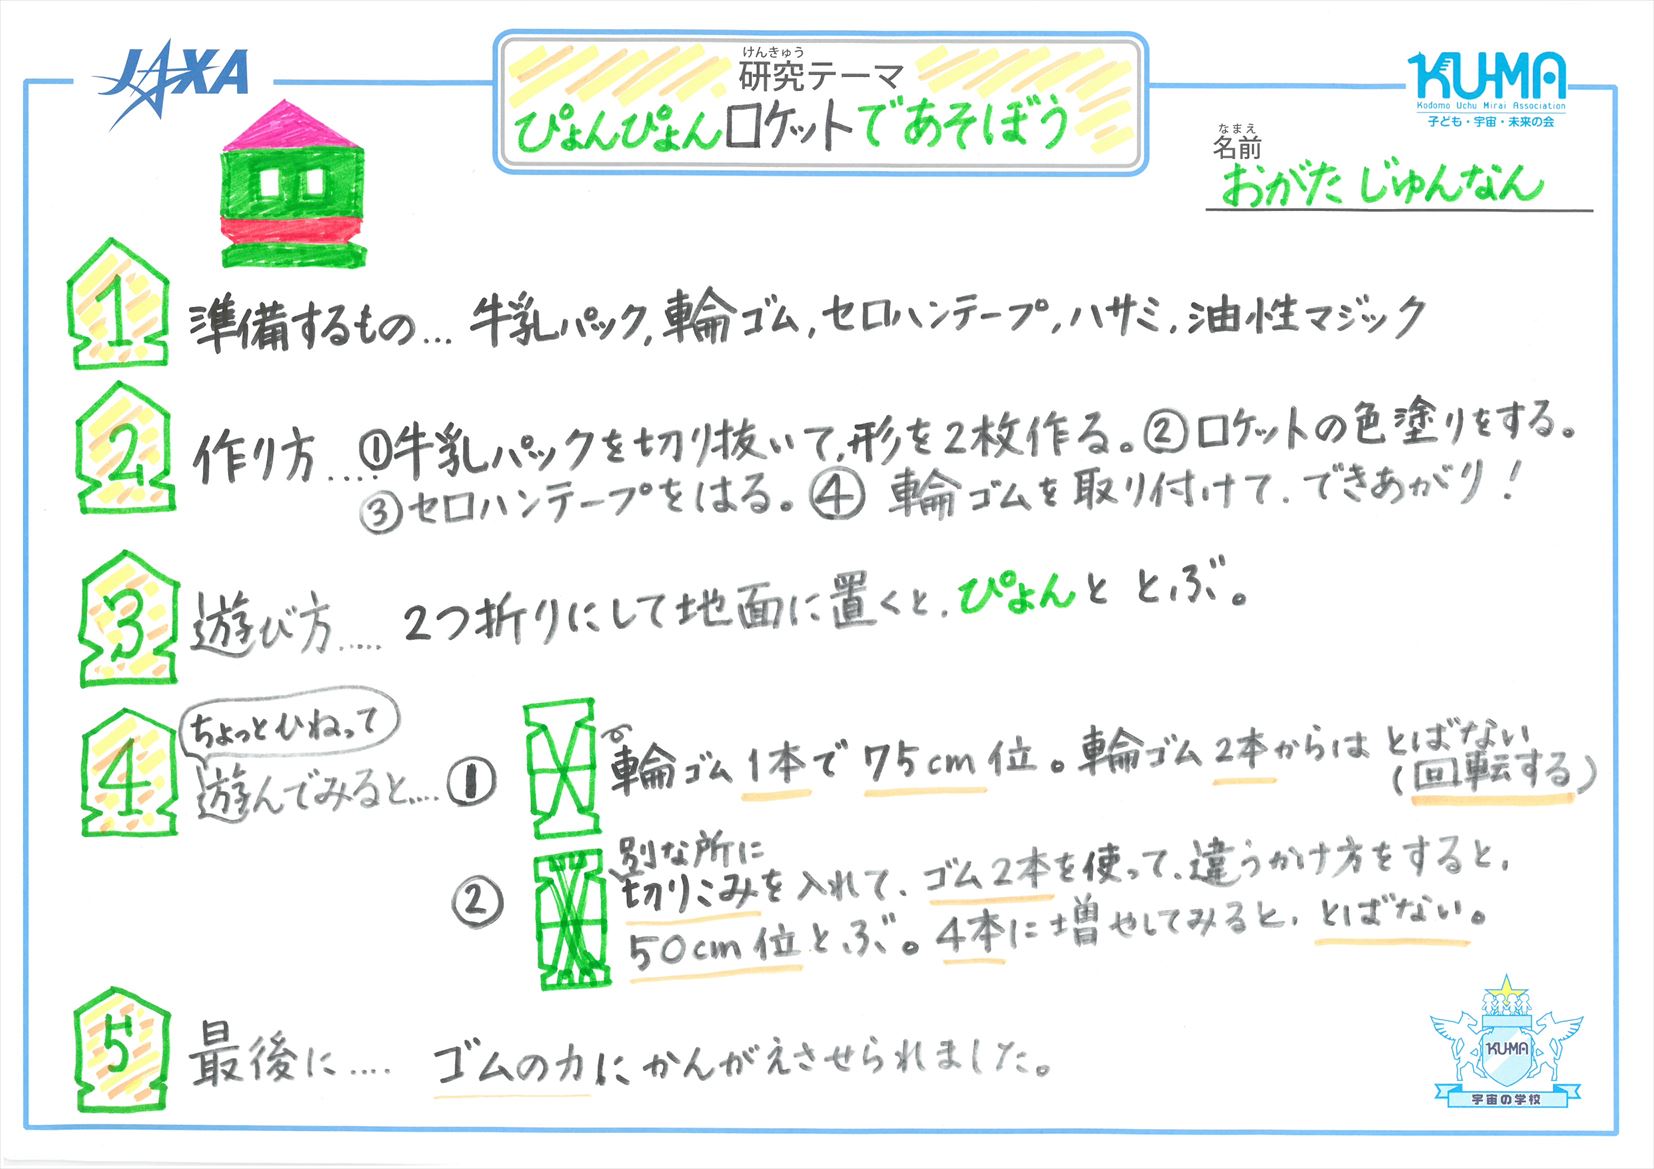 JAXA
けんきゅう
研究テーマ
ぴょんぴょんロケットであそぼう
KU-MA
Kodomo Uchu Mirai Association
子ども・宇宙・未来の会
なまえ
名前
おがた じゅんなん
1 準備するもの... 牛乳パック,輪ゴム,セロハンテープ,ハサミ,油性マジック
2 作り方.... ①牛乳パックを切り抜いて、形を2枚作る。②ロケットの色塗りをする。
③セロハンテープをはる。④ 輪ゴムを取り付けて、できあがり!
3 遊び方..... 2つ折りにして地面に置くと、ぴょんと とぶ。
4 ちょっとひねって
遊んでみると.... ① 輪ゴム1本で75cm位。輪ゴム2本からは とばない
(回転する)
② 別な所に
切りこみを入れて、ゴム2本を使って、違うかけ方をすると、
50cm位とぶ。4本に増やしてみると、とばない。
5 最後に.... ゴムの力にかんがえさせられました。
KU-MA
宇宙の学校